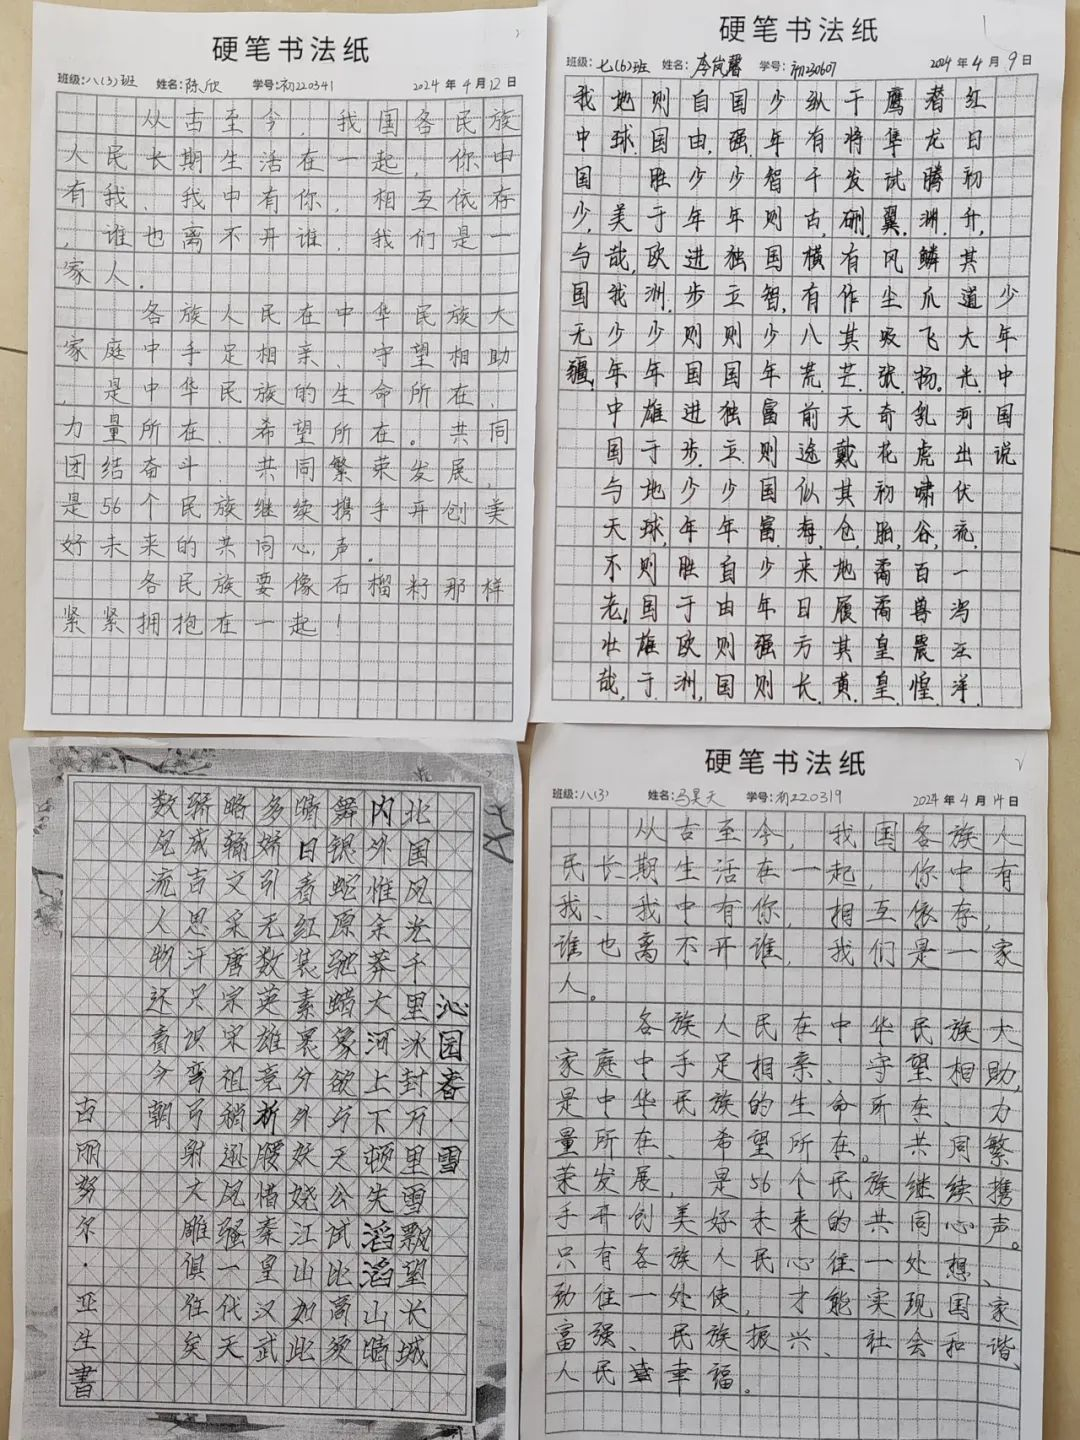 硬笔书法纸
班级:八(3)班 姓名:陈欣 学号:初220341 2024年4月12日
从古至今,我国各民族
人民长期生活在一起,你中
有我、我中有你,相互依存
,谁也离不开谁,我们是一
家人.
各族人民在中华民族大
家庭中手足相亲、守望相助
,是中华民族的生命所在、
力量所在、希望所在。共同
团结奋斗、共同繁荣发展,
是56个民族继续携手开创美
好未来的共同心声.
各民族要像石榴籽那样
紧紧拥抱在一起!
硬笔书法纸
班级:七(6)班 姓名:李岚馨 学号:初230607 2024年4月9日
少年中国说
红日初升,其道大光.河出伏流,一泻汪洋.
潜龙腾渊,鳞爪飞扬.乳虎啸谷,百兽震惶.
鹰隼试翼,风尘吸张.奇花初胎,矞矞皇皇.
干将发硎,有作其芒.天戴其仓,地履其黄.
纵有千古,横有八荒.前途似海,来日方长.
少年智则国智,少年富则国富,少年强则
国强,少年独立则国独立,少年自由则国
自由,少年进步则国进步.少年胜于欧洲,
则国胜于欧洲.少年雄于地球,则国雄于
地球.美哉,我少年中国与天不老!壮哉,
我中国少年,与国无疆.
沁园春·雪
北国风光千里冰封万里雪飘望长城
内外惟余莽大河上下顿失滔滔山晴
舞银蛇原驰蜡象欲与天公试比高须
晴日看红装素裹分外妖娆江山如此
多娇引无数英雄竞折腰惜秦皇汉武
略输文采唐宗宋祖稍逊风骚一代天
骄成吉思汗只识弯弓射大雕俱往矣
数风流人物还看今朝
古丽努尔·亚生書
硬笔书法纸
班级:八(3) 姓名:马昊天 学号:初220319 2024年4月14日
从古至今,我国各族人
民长期生活在一起,你中有
我、我中有你,相互依存,
谁也离不开谁,我们是一家
人。
各族人民在中华民族大
家庭中手足相亲、守望相助,
是中华民族的生命所在、力
量所在、希望所在。共同繁
荣发展,是56个民族继续携
手开创美好未来的共同心声。
只有各族人民心往一处想、
劲往一处使,才能实现国家
富强、民族振兴、社会和谐、
人民幸福。